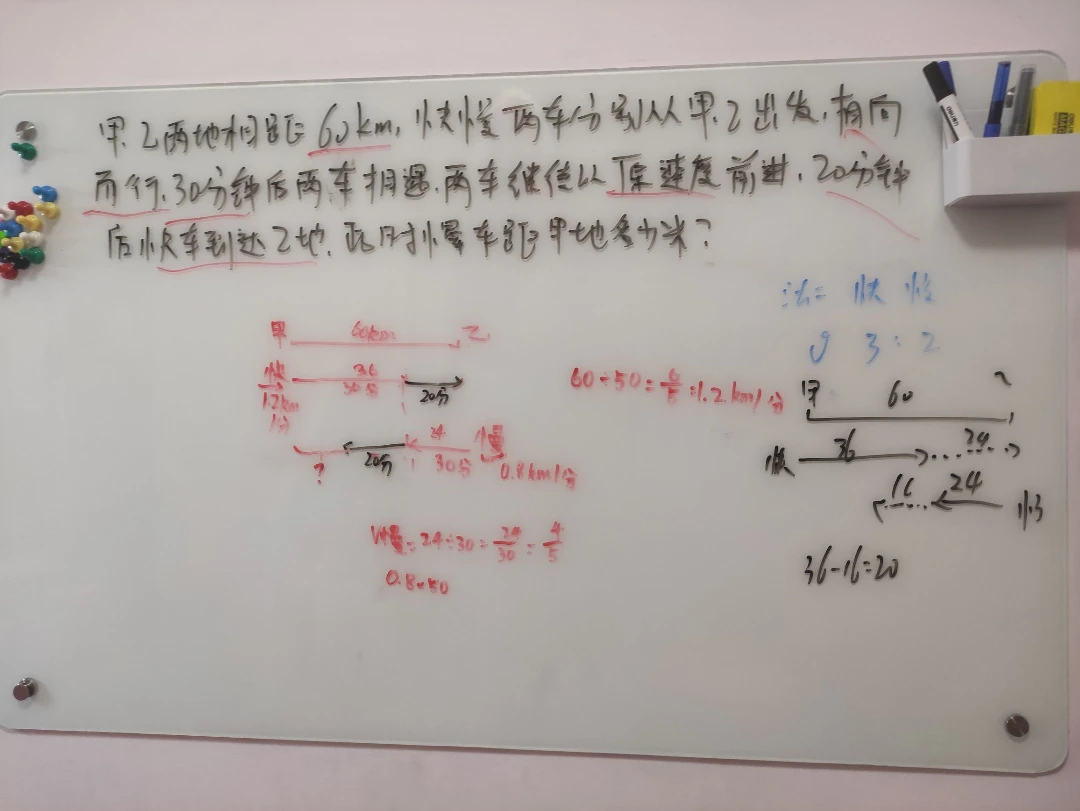 甲.乙两地相距60km,快慢两车分别从甲.乙出发,相向
而行.30分钟后两车相遇.两车继续以原速度前进.20分钟
后快车到达乙地.此时慢车距甲地多少米?
法二 快 慢
v 3:2
甲 60km 乙
快 36
30分 20分
1.2km
/分
24 慢
? 20分 30分 0.8km/分
60÷50=6/5=1.2km/分
V慢=24÷30=24/30=4/5
0.8×50
甲 60
快 36 24
16 24
36-16=20